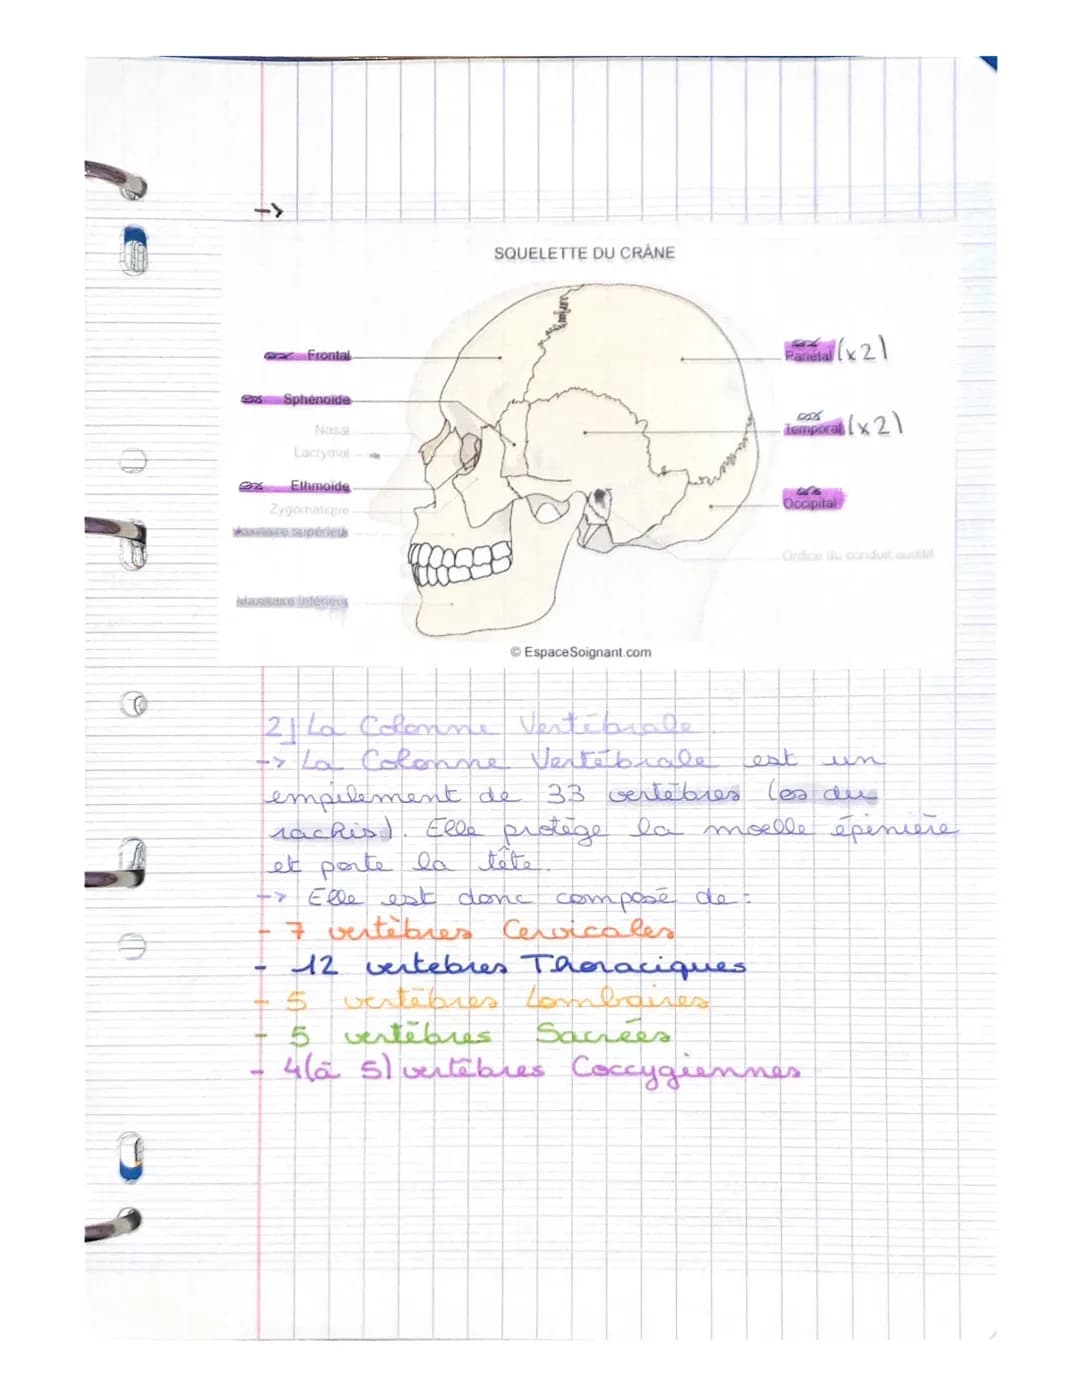 ->
SQUELETTE DU CRÂNE
Frontal
Sphénoïde
Nasal
Lacrymal
Ethmoïde
Zygomatique
Maxillaire supérieur
Maxillaire inférieur
Pariétal (x2)
Temporal (x2)
Occipital
Orifice du conduit auditif
© EspaceSoignant.com
2) La Colonne Vertébrale.
-> La Colonne Vertébrale est un
empilement de 33 vertèbres (os du
rachis). Elle protège la moelle épinière
et porte la tête.
-> Elle est donc composé de :
- 7 vertèbres Cervicales
- 12 vertebres Thoraciques
- 5 vertèbres Lombaires
- 5 vertèbres Sacrées
- 4(à 5) vertèbres Coccygiennes